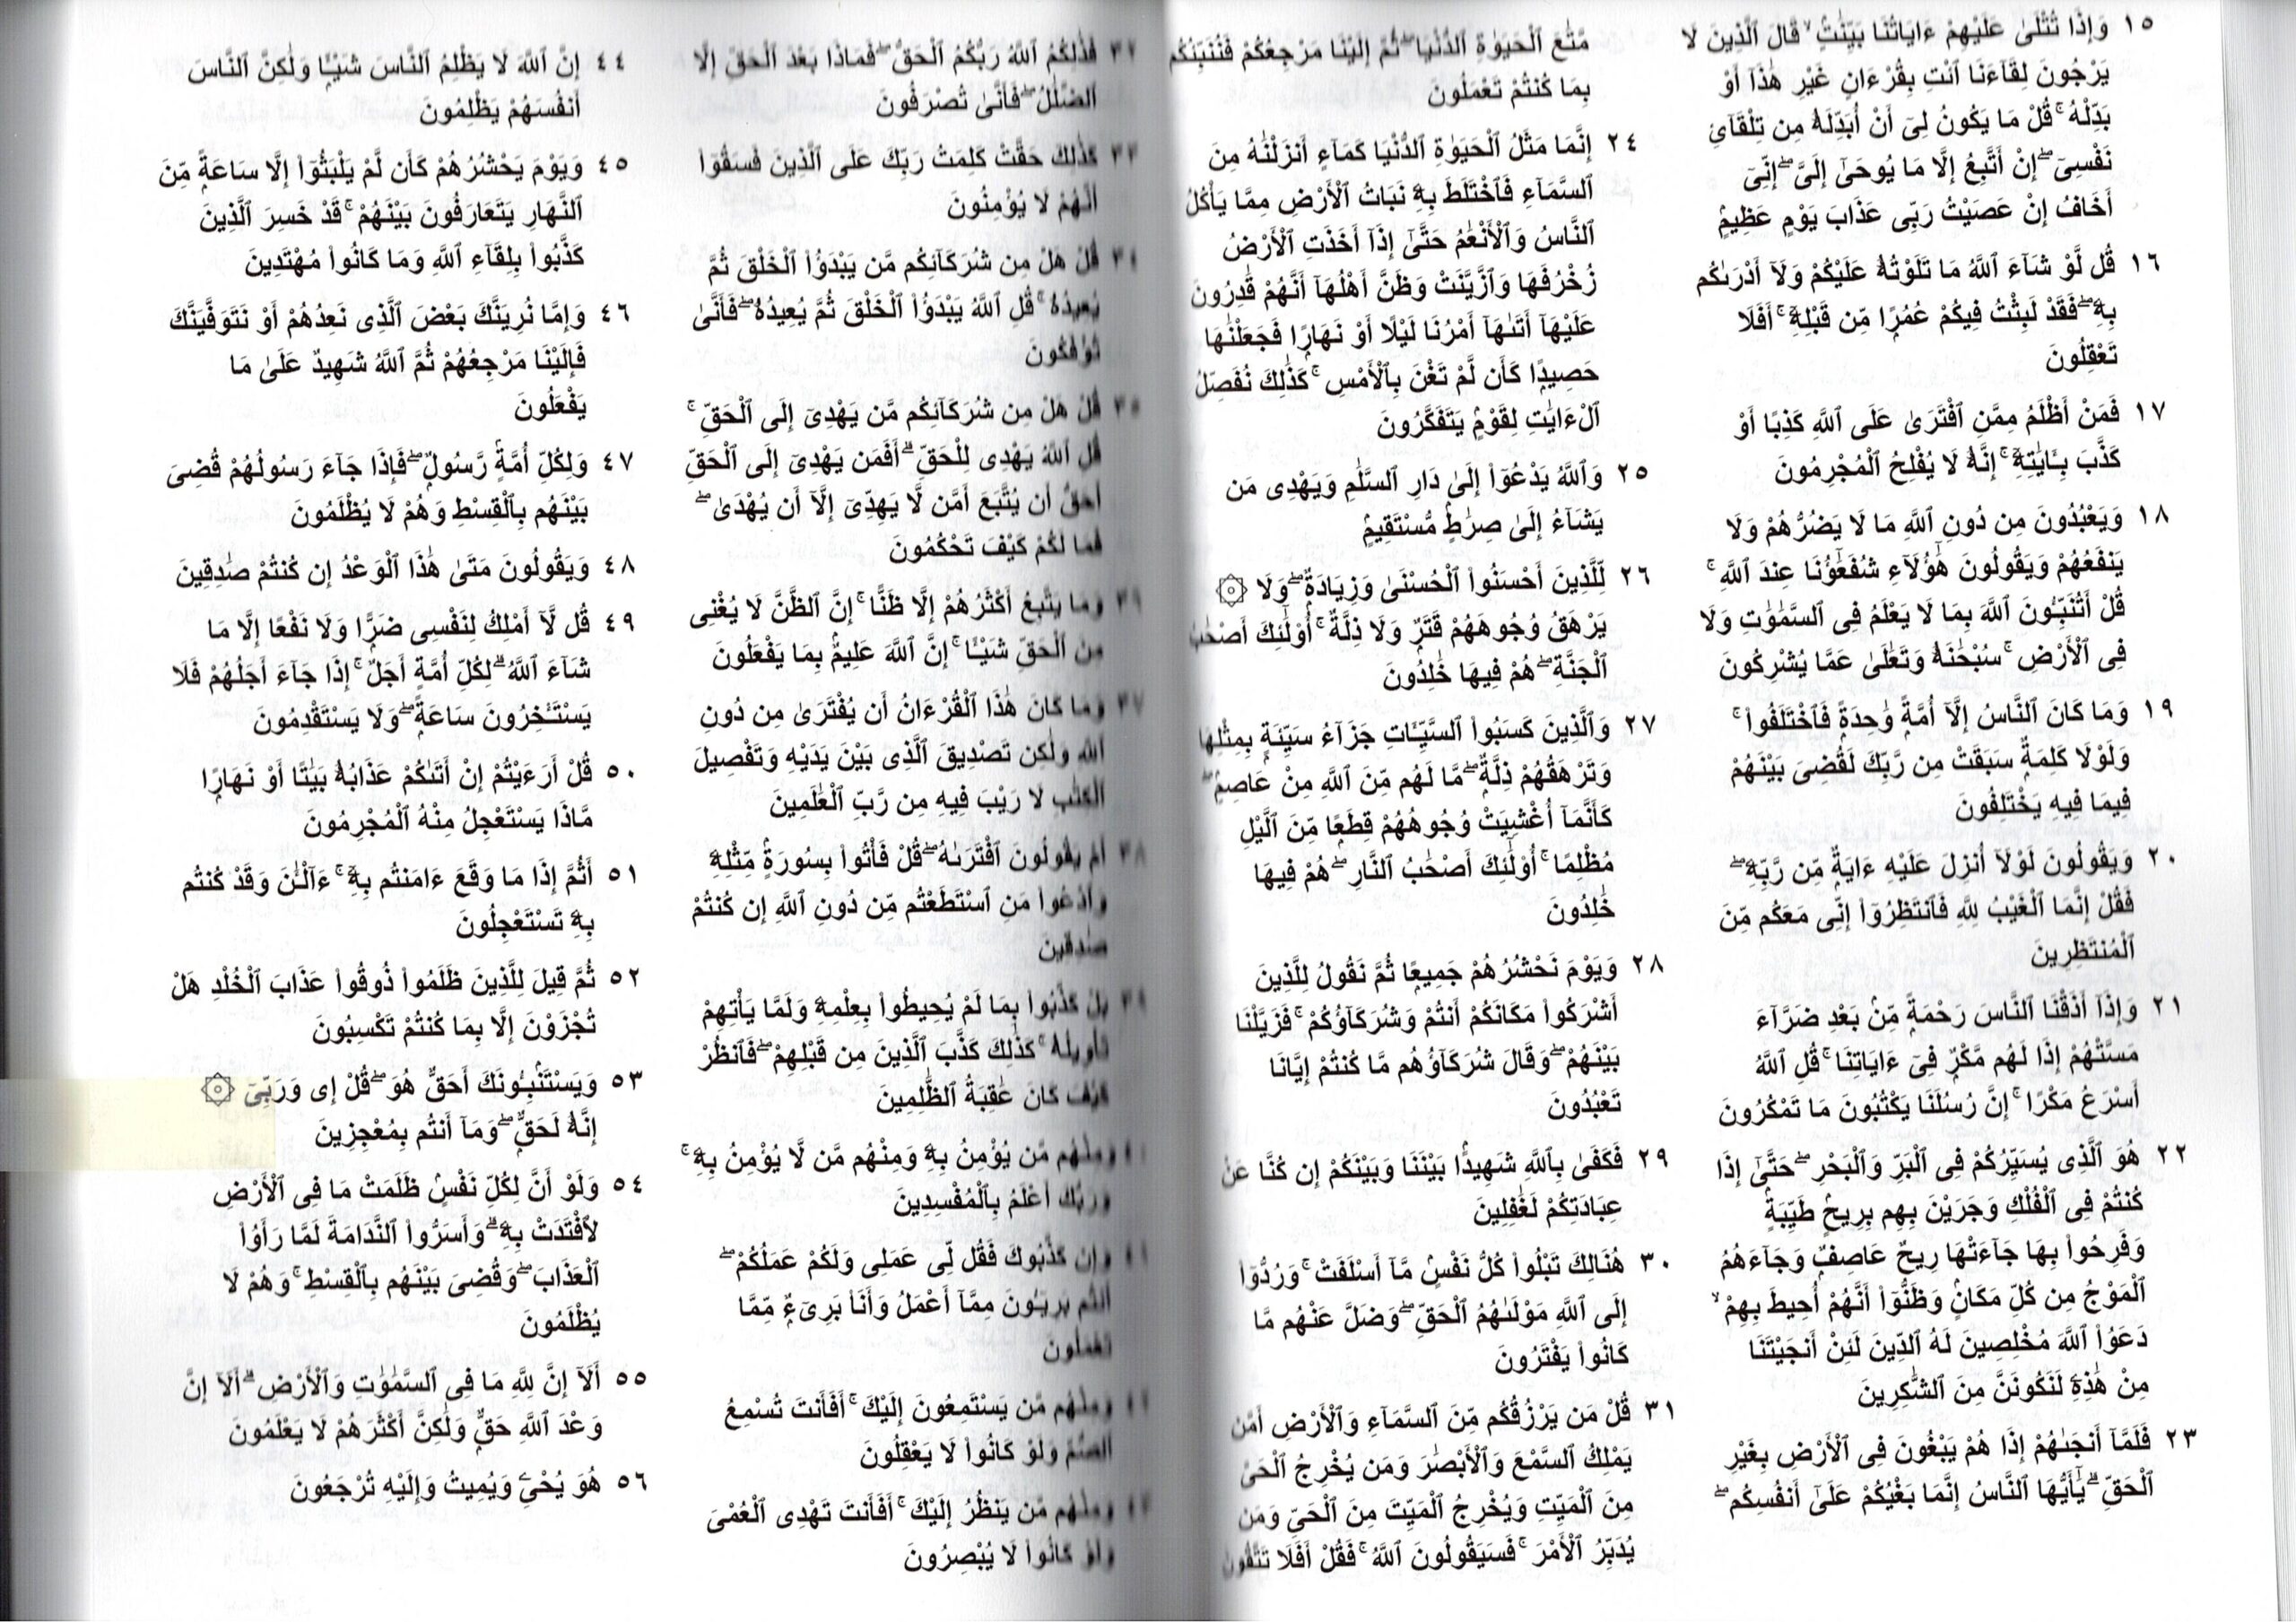 ١٥ وَإِذَا تُتْلَىٰ عَلَيْهِمْ ءَايَاتُنَا بَيِّنَٰتٍۢ ۙ قَالَ ٱلَّذِينَ لَا
يَرْجُونَ لِقَآءَنَا ٱئْتِ بِقُرْءَانٍ غَيْرِ هَٰذَآ أَوْ
بَدِّلْهُ ۚ قُلْ مَا يَكُونُ لِىٓ أَنْ أُبَدِّلَهُۥ مِن تِلْقَآئِ
نَفْسِىٓ ۖ إِنْ أَتَّبِعُ إِلَّا مَا يُوحَىٰٓ إِلَىَّ ۖ إِنِّىٓ
أَخَافُ إِنْ عَصَيْتُ رَبِّى عَذَابَ يَوْمٍ عَظِيمٍۢ
١٦ قُل لَّوْ شَآءَ ٱللَّهُ مَا تَلَوْتُهُۥ عَلَيْكُمْ وَلَآ أَدْرَىٰكُم
بِهِۦ ۖ فَقَدْ لَبِثْتُ فِيكُمْ عُمُرًۭا مِّن قَبْلِهِۦٓ ۚ أَفَلَا
تَعْقِلُونَ
١٧ فَمَنْ أَظْلَمُ مِمَّنِ ٱفْتَرَىٰ عَلَى ٱللَّهِ كَذِبًا أَوْ
كَذَّبَ بِـَٔايَٰتِهِۦٓ ۚ إِنَّهُۥ لَا يُفْلِحُ ٱلْمُجْرِمُونَ
١٨ وَيَعْبُدُونَ مِن دُونِ ٱللَّهِ مَا لَا يَضُرُّهُمْ وَلَا
يَنفَعُهُمْ وَيَقُولُونَ هَٰٓؤُلَآءِ شُفَعَٰٓؤُنَا عِندَ ٱللَّهِ ۚ
قُلْ أَتُنَبِّـُٔونَ ٱللَّهَ بِمَا لَا يَعْلَمُ فِى ٱلسَّمَٰوَٰتِ وَلَا
فِى ٱلْأَرْضِ ۚ سُبْحَٰنَهُۥ وَتَعَٰلَىٰ عَمَّا يُشْرِكُونَ
١٩ وَمَا كَانَ ٱلنَّاسُ إِلَّآ أُمَّةًۭ وَٰحِدَةًۭ فَٱخْتَلَفُوا۟ ۚ
وَلَوْلَا كَلِمَةٌۭ سَبَقَتْ مِن رَّبِّكَ لَقُضِىَ بَيْنَهُمْ
فِيمَا فِيهِ يَخْتَلِفُونَ
٢٠ وَيَقُولُونَ لَوْلَآ أُنزِلَ عَلَيْهِ ءَايَةٌۭ مِّن رَّبِّهِۦ ۖ
فَقُلْ إِنَّمَا ٱلْغَيْبُ لِلَّهِ فَٱنتَظِرُوٓا۟ إِنِّى مَعَكُم مِّنَ
ٱلْمُنتَظِرِينَ
٢١ وَإِذَآ أَذَقْنَا ٱلنَّاسَ رَحْمَةًۭ مِّنۢ بَعْدِ ضَرَّآءَ
مَسَّتْهُمْ إِذَا لَهُم مَّكْرٌۭ فِىٓ ءَايَاتِنَا ۚ قُلِ ٱللَّهُ
أَسْرَعُ مَكْرًا ۚ إِنَّ رُسُلَنَا يَكْتُبُونَ مَا تَمْكُرُونَ
٢٢ هُوَ ٱلَّذِى يُسَيِّرُكُمْ فِى ٱلْبَرِّ وَٱلْبَحْرِ ۖ حَتَّىٰٓ إِذَا
كُنتُمْ فِى ٱلْفُلْكِ وَجَرَيْنَ بِهِم بِرِيحٍۢ طَيِّبَةٍۢ
وَفَرِحُوا۟ بِهَا جَآءَتْهَا رِيحٌ عَاصِفٌۭ وَجَآءَهُمُ
ٱلْمَوْجُ مِن كُلِّ مَكَانٍۢ وَظَنُّوٓا۟ أَنَّهُمْ أُحِيطَ بِهِمْ ۙ
دَعَوُا۟ ٱللَّهَ مُخْلِصِينَ لَهُ ٱلدِّينَ لَئِنْ أَنجَيْتَنَا
مِنْ هَٰذِهِۦ لَنَكُونَنَّ مِنَ ٱلشَّٰكِرِينَ
٢٣ فَلَمَّآ أَنجَىٰهُمْ إِذَا هُمْ يَبْغُونَ فِى ٱلْأَرْضِ بِغَيْرِ
ٱلْحَقِّ ۗ يَٰٓأَيُّهَا ٱلنَّاسُ إِنَّمَا بَغْيُكُمْ عَلَىٰٓ أَنفُسِكُم ۖ
مَّتَٰعَ ٱلْحَيَوٰةِ ٱلدُّنْيَا ۖ ثُمَّ إِلَيْنَا مَرْجِعُكُمْ فَنُنَبِّئُكُم
بِمَا كُنتُمْ تَعْمَلُونَ
٢٤ إِنَّمَا مَثَلُ ٱلْحَيَوٰةِ ٱلدُّنْيَا كَمَآءٍ أَنزَلْنَٰهُ مِنَ
ٱلسَّمَآءِ فَٱخْتَلَطَ بِهِۦ نَبَاتُ ٱلْأَرْضِ مِمَّا يَأْكُلُ
ٱلنَّاسُ وَٱلْأَنْعَٰمُ حَتَّىٰٓ إِذَآ أَخَذَتِ ٱلْأَرْضُ
زُخْرُفَهَا وَٱزَّيَّنَتْ وَظَنَّ أَهْلُهَآ أَنَّهُمْ قَٰدِرُونَ
عَلَيْهَآ أَتَىٰهَآ أَمْرُنَا لَيْلًا أَوْ نَهَارًۭا فَجَعَلْنَٰهَا
حَصِيدًۭا كَأَن لَّمْ تَغْنَ بِٱلْأَمْسِ ۚ كَذَٰلِكَ نُفَصِّلُ
ٱلْءَايَٰتِ لِقَوْمٍۢ يَتَفَكَّرُونَ
٢٥ وَٱللَّهُ يَدْعُوٓا۟ إِلَىٰ دَارِ ٱلسَّلَٰمِ وَيَهْدِى مَن
يَشَآءُ إِلَىٰ صِرَٰطٍۢ مُّسْتَقِيمٍۢ
٢٦ لِّلَّذِينَ أَحْسَنُوا۟ ٱلْحُسْنَىٰ وَزِيَادَةٌۭ ۖ وَلَا ۞
يَرْهَقُ وُجُوهَهُمْ قَتَرٌۭ وَلَا ذِلَّةٌ ۚ أُو۟لَٰٓئِكَ أَصْحَٰبُ
ٱلْجَنَّةِ ۖ هُمْ فِيهَا خَٰلِدُونَ
٢٧ وَٱلَّذِينَ كَسَبُوا۟ ٱلسَّيِّـَٔاتِ جَزَآءُ سَيِّئَةٍۭ بِمِثْلِهَا
وَتَرْهَقُهُمْ ذِلَّةٌۭ ۖ مَّا لَهُم مِّنَ ٱللَّهِ مِنْ عَاصِمٍۢ ۖ
كَأَنَّمَآ أُغْشِيَتْ وُجُوهُهُمْ قِطَعًۭا مِّنَ ٱلَّيْلِ
مُظْلِمًا ۚ أُو۟لَٰٓئِكَ أَصْحَٰبُ ٱلنَّارِ ۖ هُمْ فِيهَا
خَٰلِدُونَ
٢٨ وَيَوْمَ نَحْشُرُهُمْ جَمِيعًۭا ثُمَّ نَقُولُ لِلَّذِينَ
أَشْرَكُوا۟ مَكَانَكُمْ أَنتُمْ وَشُرَكَآؤُكُمْ ۚ فَزَيَّلْنَا
بَيْنَهُمْ ۖ وَقَالَ شُرَكَآؤُهُم مَّا كُنتُمْ إِيَّانَا
تَعْبُدُونَ
٢٩ فَكَفَىٰ بِٱللَّهِ شَهِيدًۢا بَيْنَنَا وَبَيْنَكُمْ إِن كُنَّا عَنْ
عِبَادَتِكُمْ لَغَٰفِلِينَ
٣٠ هُنَالِكَ تَبْلُوا۟ كُلُّ نَفْسٍۢ مَّآ أَسْلَفَتْ ۚ وَرُدُّوٓا۟
إِلَى ٱللَّهِ مَوْلَىٰهُمُ ٱلْحَقِّ ۖ وَضَلَّ عَنْهُم مَّا
كَانُوا۟ يَفْتَرُونَ
٣١ قُلْ مَن يَرْزُقُكُم مِّنَ ٱلسَّمَآءِ وَٱلْأَرْضِ أَمَّن
يَمْلِكُ ٱلسَّمْعَ وَٱلْأَبْصَٰرَ وَمَن يُخْرِجُ ٱلْحَىَّ
مِنَ ٱلْمَيِّتِ وَيُخْرِجُ ٱلْمَيِّتَ مِنَ ٱلْحَىِّ وَمَن
يُدَبِّرُ ٱلْأَمْرَ ۚ فَسَيَقُولُونَ ٱللَّهُ ۚ فَقُلْ أَفَلَا تَتَّقُونَ
٣٢ فَذَٰلِكُمُ ٱللَّهُ رَبُّكُمُ ٱلْحَقُّ ۖ فَمَاذَا بَعْدَ ٱلْحَقِّ إِلَّا
ٱلضَّلَٰلُ ۖ فَأَنَّىٰ تُصْرَفُونَ
٣٣ كَذَٰلِكَ حَقَّتْ كَلِمَتُ رَبِّكَ عَلَى ٱلَّذِينَ فَسَقُوٓا۟
أَنَّهُمْ لَا يُؤْمِنُونَ
٣٤ قُلْ هَلْ مِن شُرَكَآئِكُم مَّن يَبْدَؤُا۟ ٱلْخَلْقَ ثُمَّ
يُعِيدُهُۥ ۚ قُلِ ٱللَّهُ يَبْدَؤُا۟ ٱلْخَلْقَ ثُمَّ يُعِيدُهُۥ ۖ فَأَنَّىٰ
تُؤْفَكُونَ
٣٥ قُلْ هَلْ مِن شُرَكَآئِكُم مَّن يَهْدِىٓ إِلَى ٱلْحَقِّ ۚ
قُلِ ٱللَّهُ يَهْدِى لِلْحَقِّ ۗ أَفَمَن يَهْدِىٓ إِلَى ٱلْحَقِّ
أَحَقُّ أَن يُتَّبَعَ أَمَّن لَّا يَهِدِّىٓ إِلَّآ أَن يُهْدَىٰ ۖ
فَمَا لَكُمْ كَيْفَ تَحْكُمُونَ
٣٦ وَمَا يَتَّبِعُ أَكْثَرُهُمْ إِلَّا ظَنًّا ۚ إِنَّ ٱلظَّنَّ لَا يُغْنِى
مِنَ ٱلْحَقِّ شَيْـًٔا ۚ إِنَّ ٱللَّهَ عَلِيمٌۢ بِمَا يَفْعَلُونَ
٣٧ وَمَا كَانَ هَٰذَا ٱلْقُرْءَانُ أَن يُفْتَرَىٰ مِن دُونِ
ٱللَّهِ وَلَٰكِن تَصْدِيقَ ٱلَّذِى بَيْنَ يَدَيْهِ وَتَفْصِيلَ
ٱلْكِتَٰبِ لَا رَيْبَ فِيهِ مِن رَّبِّ ٱلْعَٰلَمِينَ
٣٨ أَمْ يَقُولُونَ ٱفْتَرَىٰهُ ۖ قُلْ فَأْتُوا۟ بِسُورَةٍۢ مِّثْلِهِۦ
وَٱدْعُوا۟ مَنِ ٱسْتَطَعْتُم مِّن دُونِ ٱللَّهِ إِن كُنتُمْ
صَٰدِقِينَ
٣٩ بَلْ كَذَّبُوا۟ بِمَا لَمْ يُحِيطُوا۟ بِعِلْمِهِۦ وَلَمَّا يَأْتِهِمْ
تَأْوِيلُهُۥ ۚ كَذَٰلِكَ كَذَّبَ ٱلَّذِينَ مِن قَبْلِهِمْ ۖ فَٱنظُرْ
كَيْفَ كَانَ عَٰقِبَةُ ٱلظَّٰلِمِينَ
٤٠ وَمِنْهُم مَّن يُؤْمِنُ بِهِۦ وَمِنْهُم مَّن لَّا يُؤْمِنُ بِهِۦ ۚ
وَرَبُّكَ أَعْلَمُ بِٱلْمُفْسِدِينَ
٤١ وَإِن كَذَّبُوكَ فَقُل لِّى عَمَلِى وَلَكُمْ عَمَلُكُمْ ۖ
أَنتُم بَرِيٓـُٔونَ مِمَّآ أَعْمَلُ وَأَنَا۠ بَرِىٓءٌۭ مِّمَّا
تَعْمَلُونَ
٤٢ وَمِنْهُم مَّن يَسْتَمِعُونَ إِلَيْكَ ۚ أَفَأَنتَ تُسْمِعُ
ٱلصُّمَّ وَلَوْ كَانُوا۟ لَا يَعْقِلُونَ
٤٣ وَمِنْهُم مَّن يَنظُرُ إِلَيْكَ ۚ أَفَأَنتَ تَهْدِى ٱلْعُمْىَ
وَلَوْ كَانُوا۟ لَا يُبْصِرُونَ
٤٤ إِنَّ ٱللَّهَ لَا يَظْلِمُ ٱلنَّاسَ شَيْـًۭٔا وَلَٰكِنَّ ٱلنَّاسَ
أَنفُسَهُمْ يَظْلِمُونَ
٤٥ وَيَوْمَ يَحْشُرُهُمْ كَأَن لَّمْ يَلْبَثُوٓا۟ إِلَّا سَاعَةًۭ مِّنَ
ٱلنَّهَارِ يَتَعَارَفُونَ بَيْنَهُمْ ۚ قَدْ خَسِرَ ٱلَّذِينَ
كَذَّبُوا۟ بِلِقَآءِ ٱللَّهِ وَمَا كَانُوا۟ مُهْتَدِينَ
٤٦ وَإِمَّا نُرِيَنَّكَ بَعْضَ ٱلَّذِى نَعِدُهُمْ أَوْ نَتَوَفَّيَنَّكَ
فَإِلَيْنَا مَرْجِعُهُمْ ثُمَّ ٱللَّهُ شَهِيدٌ عَلَىٰ مَا
يَفْعَلُونَ
٤٧ وَلِكُلِّ أُمَّةٍۢ رَّسُولٌۭ ۖ فَإِذَا جَآءَ رَسُولُهُمْ قُضِىَ
بَيْنَهُم بِٱلْقِسْطِ وَهُمْ لَا يُظْلَمُونَ
٤٨ وَيَقُولُونَ مَتَىٰ هَٰذَا ٱلْوَعْدُ إِن كُنتُمْ صَٰدِقِينَ
٤٩ قُل لَّآ أَمْلِكُ لِنَفْسِى ضَرًّۭا وَلَا نَفْعًا إِلَّا مَا
شَآءَ ٱللَّهُ ۗ لِكُلِّ أُمَّةٍ أَجَلٌ ۚ إِذَا جَآءَ أَجَلُهُمْ فَلَا
يَسْتَـْٔخِرُونَ سَاعَةًۭ ۖ وَلَا يَسْتَقْدِمُونَ
٥٠ قُلْ أَرَءَيْتُمْ إِنْ أَتَىٰكُمْ عَذَابُهُۥ بَيَٰتًا أَوْ نَهَارًۭا
مَّاذَا يَسْتَعْجِلُ مِنْهُ ٱلْمُجْرِمُونَ
٥١ أَثُمَّ إِذَا مَا وَقَعَ ءَامَنتُم بِهِۦٓ ۚ ءَآلْـَٰٔنَ وَقَدْ كُنتُم
بِهِۦ تَسْتَعْجِلُونَ
٥٢ ثُمَّ قِيلَ لِلَّذِينَ ظَلَمُوا۟ ذُوقُوا۟ عَذَابَ ٱلْخُلْدِ هَلْ
تُجْزَوْنَ إِلَّا بِمَا كُنتُمْ تَكْسِبُونَ
٥٣ وَيَسْتَنۢبِـُٔونَكَ أَحَقٌّ هُوَ ۖ قُلْ إِى وَرَبِّىٓ ۞
إِنَّهُۥ لَحَقٌّۭ ۖ وَمَآ أَنتُم بِمُعْجِزِينَ
٥٤ وَلَوْ أَنَّ لِكُلِّ نَفْسٍۢ ظَلَمَتْ مَا فِى ٱلْأَرْضِ
لَٱفْتَدَتْ بِهِۦ ۗ وَأَسَرُّوا۟ ٱلنَّدَامَةَ لَمَّا رَأَوُا۟
ٱلْعَذَابَ ۖ وَقُضِىَ بَيْنَهُم بِٱلْقِسْطِ ۚ وَهُمْ لَا
يُظْلَمُونَ
٥٥ أَلَآ إِنَّ لِلَّهِ مَا فِى ٱلسَّمَٰوَٰتِ وَٱلْأَرْضِ ۗ أَلَآ إِنَّ
وَعْدَ ٱللَّهِ حَقٌّۭ وَلَٰكِنَّ أَكْثَرَهُمْ لَا يَعْلَمُونَ
٥٦ هُوَ يُحْىِۦ وَيُمِيتُ وَإِلَيْهِ تُرْجَعُونَ